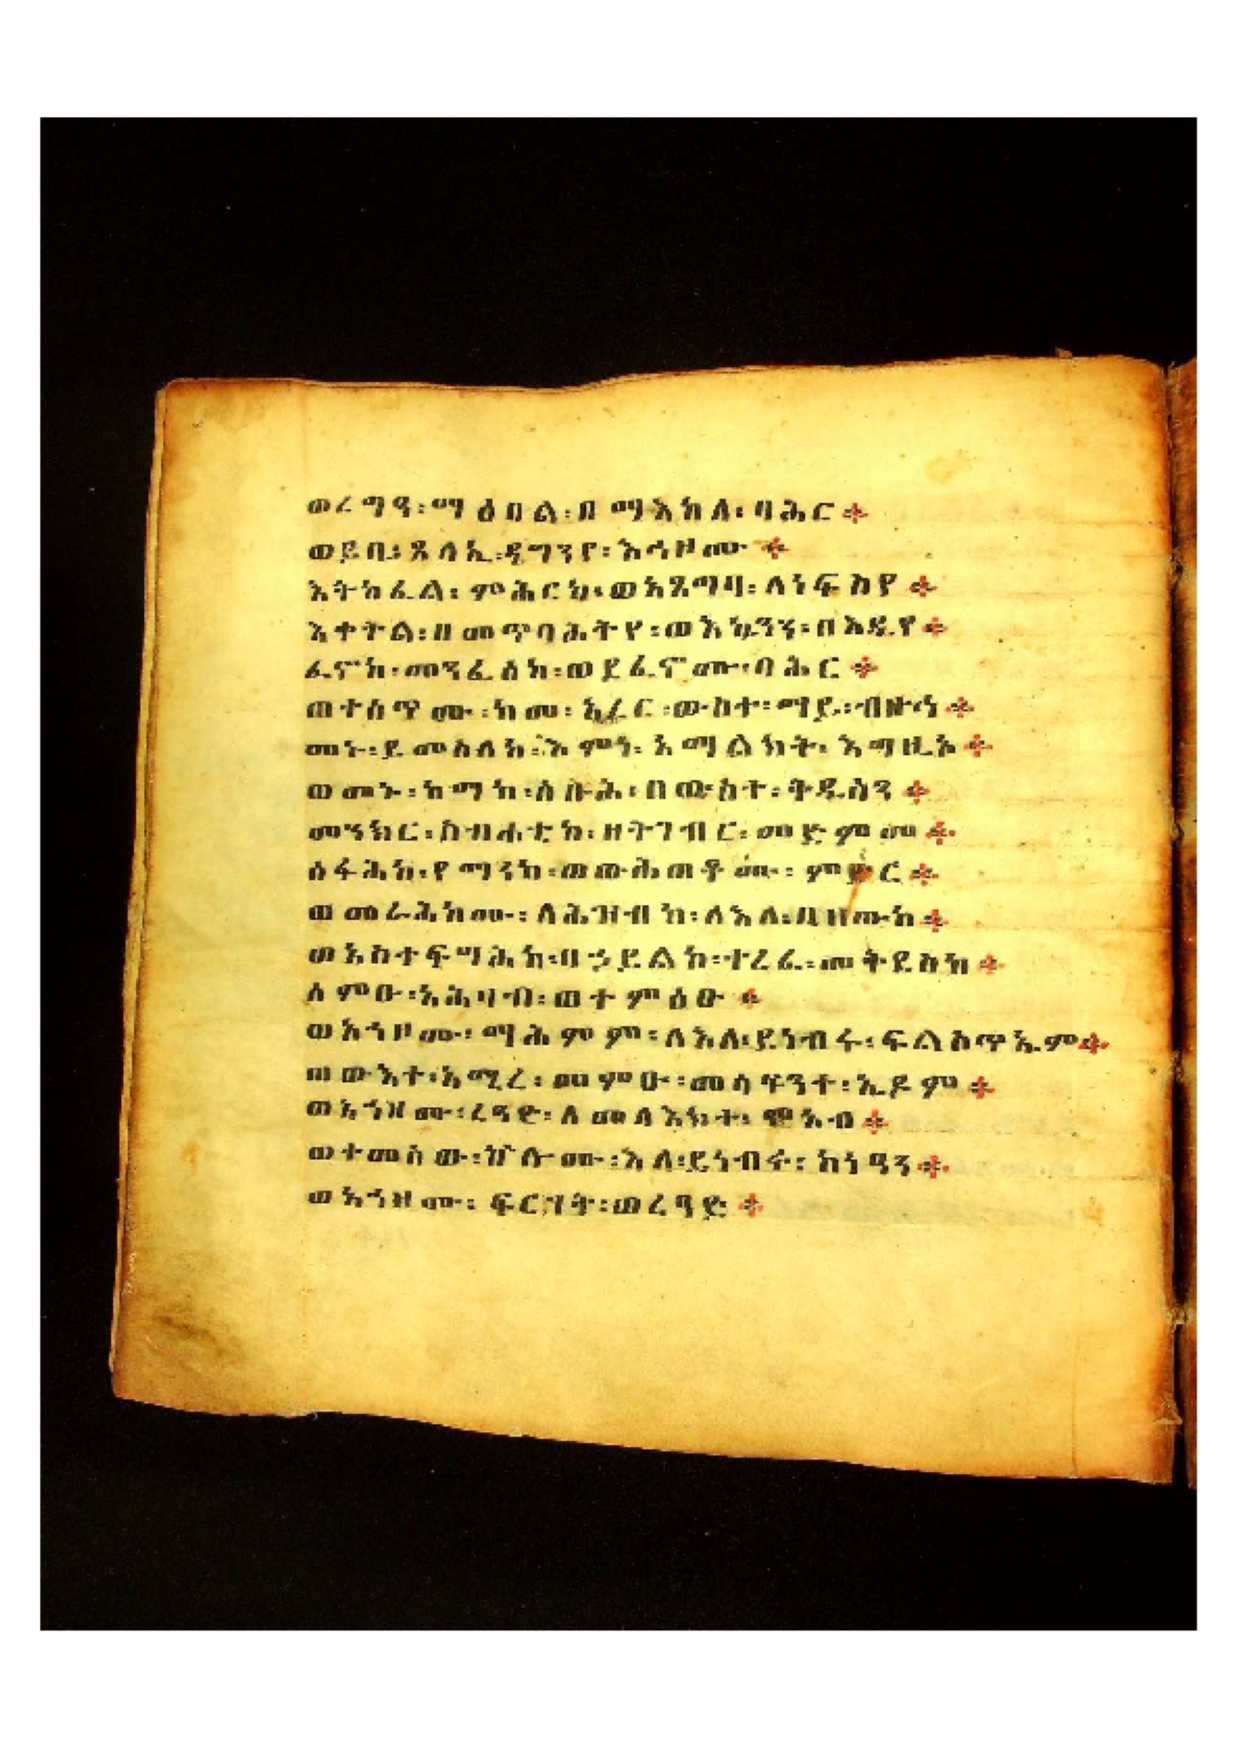 ወረግዓ፡ማዕበል፡በማእከለ፡ባሕር።
ወይቤ፡ጸላኢ፡ዴግንየ፡እኅዞሙ።
እትከፈል፡ምሕርካ፡ወአጸግባ፡ለነፍስየ።
እቀትል፡በመጥባሕትየ፡ወእኴንን፡በእዴየ።
ፈኖከ፡መንፈሰከ፡ወደፈኖሙ፡ባሕር።
ጠተሰጥሙ፡ከመ፡ዓረር፡ውስተ፡ማይ፡ብዙኅ።
መኑ፡ይመስለከ፡እምነ፡አማልክት፡እግዚኦ።
ወመኑ፡ከማከ፡ስቡሕ፡በውስተ፡ቅዱሳን።
መንክር፡ስብሐቲከ፡ዘትገብር፡መድምመ።
ሰፋሕከ፡የማንከ፡ወውሕጠቶሙ፡ምድር።
ወመራሕከሙ፡ለሕዝብከ፡ለእለ፡ቤዘውከ።
ወአስተፍሣሕከ፡በኃይልከ፡ተረፈ፡መቅደስከ።
ሰምዑ፡አሕዛብ፡ወተምዕዑ።
ወአኀዞሙ፡ማሕምም፡ለእለ፡ይነብሩ፡ፍልስጥኤም።
ጠውእተ፡አሚረ፡መምዑ፡መሳፍንተ፡ኤዶም።
ወአኀዞሙ፡ረዓድ፡ለመላእክተ፡ሞአብ።
ወተመስወ፡ኵሎሙ፡እለ፡ይነብሩ፡ከነዓን።
ወአኀዞሙ፡ፍርሃት፡ወረዓድ።